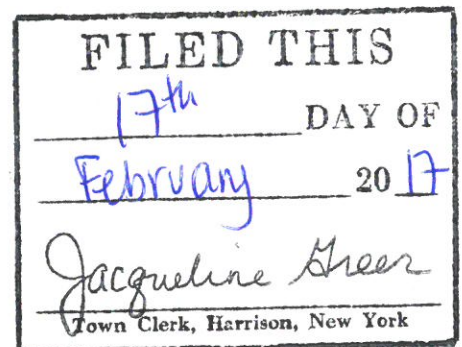 FILED THIS
17th DAY OF
February 20 17
Jacqueline Greer
Town Clerk, Harrison, New York